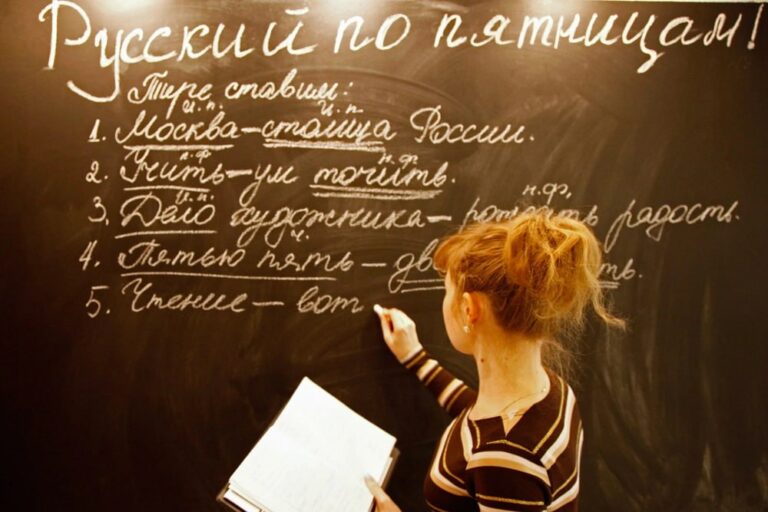 Русский по пятницам!
Тире ставим:
и.п. и.п.
1. Москва – столица России.
н.ф. н.ф.
2. Учить – ум точить.
и.п. н.ф.
3. Дело художника – рождать радость.
ч.
4. Пятью пять – ть.
5. Чтение – вот